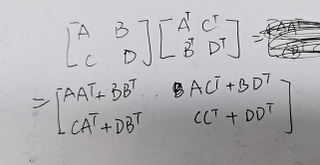 [A B C D] [Aᵀ Cᵀ Bᵀ Dᵀ] =
= [AAᵀ + BBᵀ .. ACᵀ + BDᵀ
CAᵀ + DBᵀ CCᵀ + DDᵀ]